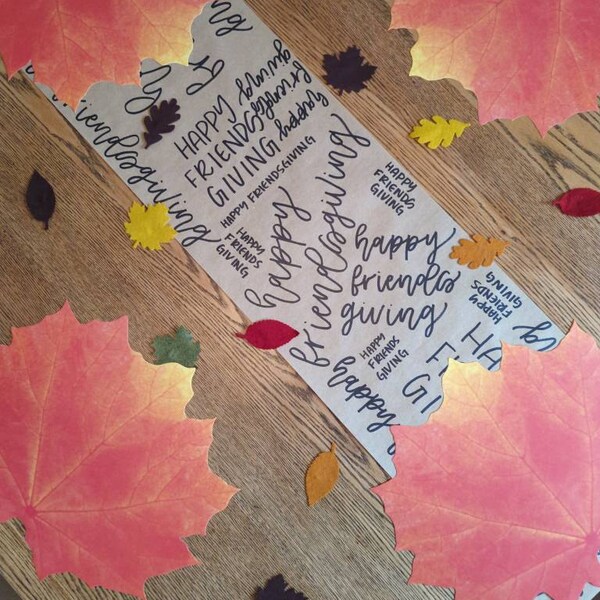 happy
friends
giving
friendsgiving
HAPPY
FRIENDS
GIVING
HAPPY FRIENDSGIVING
HAPPY
FRIENDS
GIVING
happy
friendsgiving
HAPPY
FRIENDS
GIVING
happy
friends
giving
HAPPY
FRIENDS
GIVING
HAPPY
FRIENDS
GIVING
happy